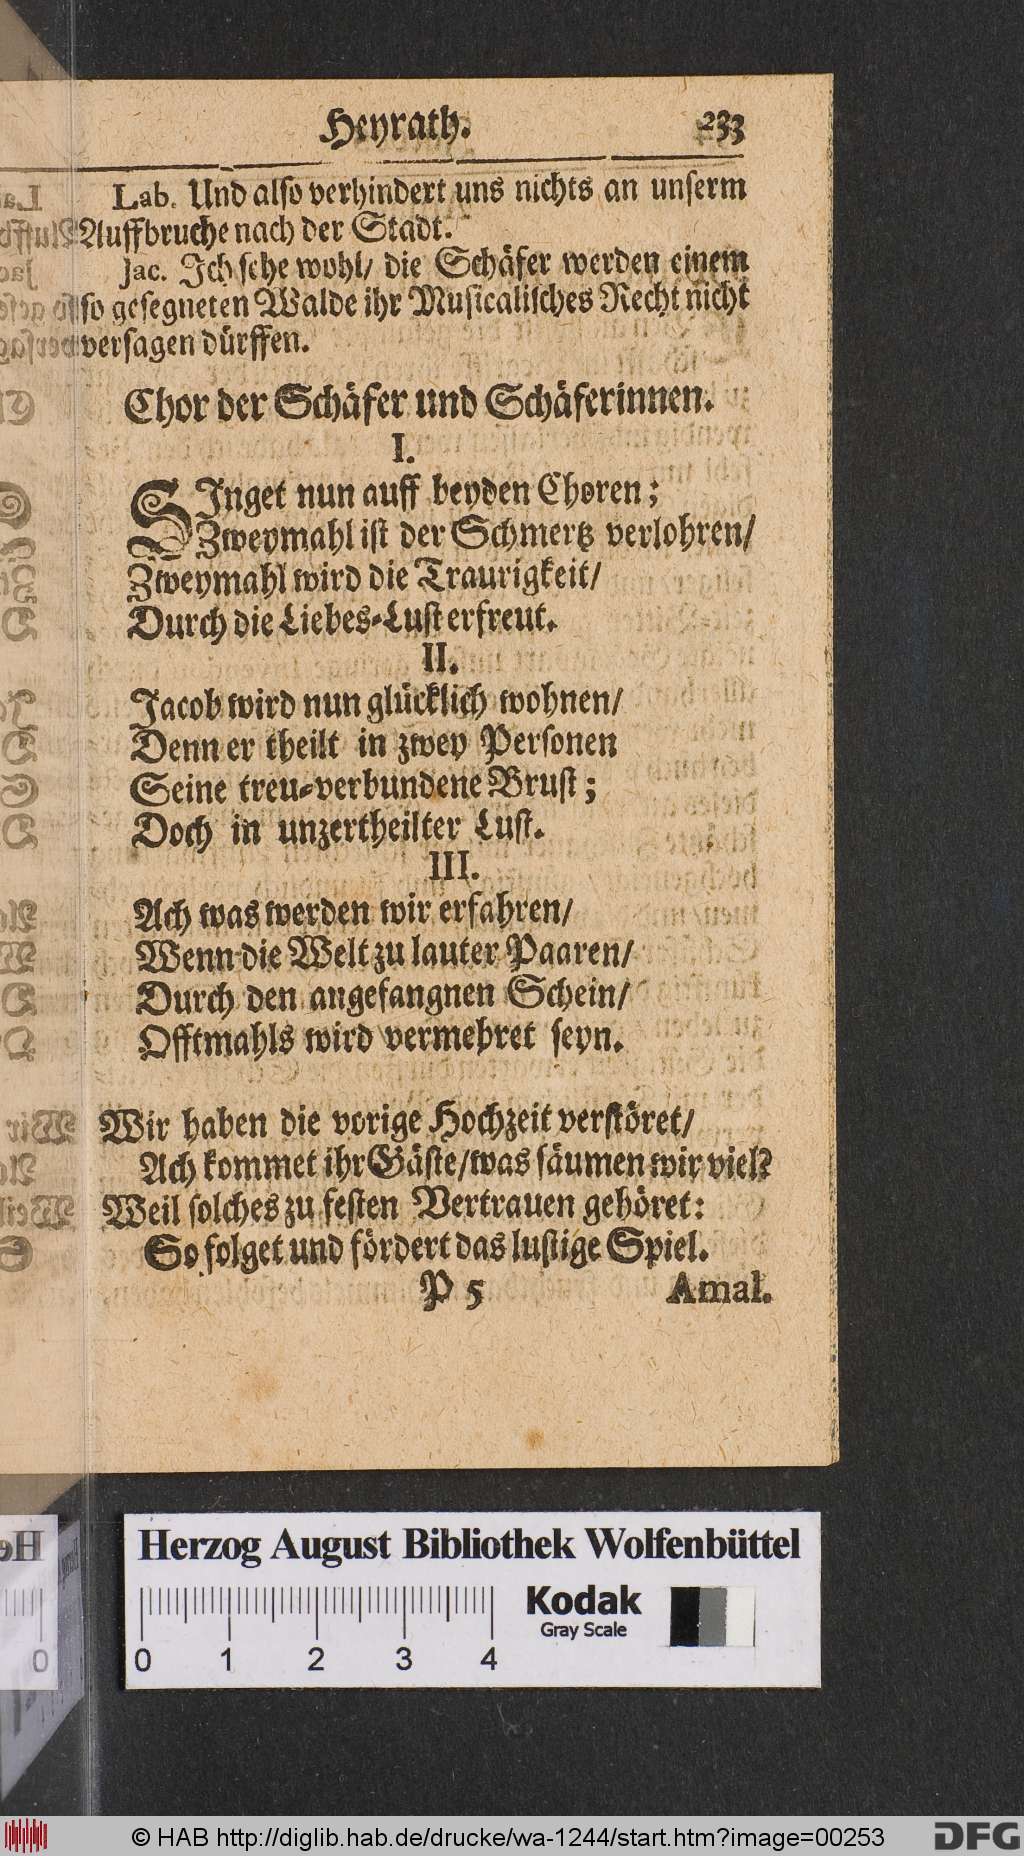 Heyrath. 233
Lab. Und also verhindert uns nichts an unserm
Auffbruche nach der Stadt.
Jac. Ich sehe wohl/ die Schäfer werden einem
so gesegneten Walde ihr Musicalisches Recht nicht
versagen dürffen.
Chor der Schäfer und Schäferinnen.
I.
SInget nun auff beyden Choren;
Zweymahl ist der Schmertz verlohren/
Zweymahl wird die Traurigkeit/
Durch die Liebes-Lust erfreut.
II.
Jacob wird nun glücklich wohnen/
Denn er theilt in zwey Personen
Seine treu-verbundene Brust;
Doch in unzertheilter Lust.
III.
Ach was werden wir erfahren/
Wenn die Welt zu lauter Paaren/
Durch den angefangnen Schein/
Offtmahls wird vermehret seyn.
Wir haben die vorige Hochzeit verstöret/
Ach kommet ihr Gäste/was säumen wir viel?
Weil solches zu festen Vertrauen gehöret:
So folget und fördert das lustige Spiel.
P 5 Amal.
Herzog August Bibliothek Wolfenbüttel
Kodak
Gray Scale
0 1 2 3 4
© HAB http://diglib.hab.de/drucke/wa-1244/start.htm?image=00253
DFG